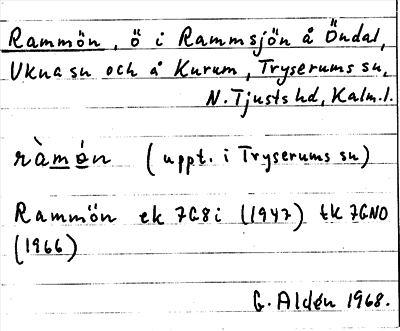 Rammön, ö i Rammsjön å Öndal,
Ukna sn och å Kurum, Tryserums sn,
N. Tjusts hd, Kalm. l.
ràmø̀n (uppt. i Tryserums sn)
Rammön ek 7G8i (1947) tk 7GNO
(1966)
G. Aldén 1968.